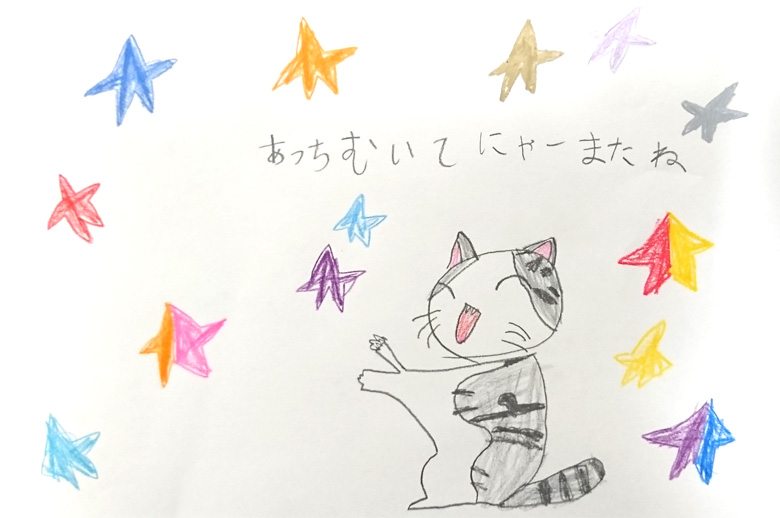 あっちむいてにゃーまたね